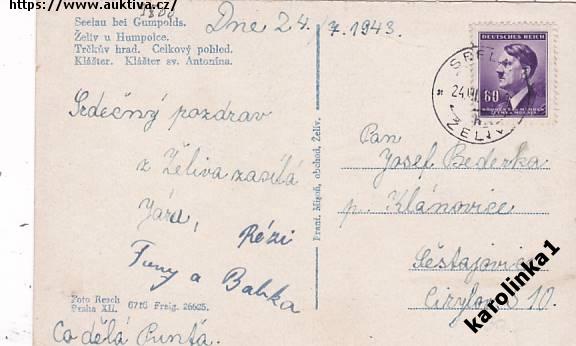 https://www.auktiva.cz/
Seelau bei Gumpolds.
Želiv u Humpolce.
Trčkův hrad. Celkový pohled.
Klášter. Klášter sv. Antonína.
Dne 24. /7. 1943.
DEUTSCHES REICH
60
ŽELIV
Srdečný pozdrav
z Želiva zasílá
Jára, Rézi
Fany a Babka
Co dělá Punťa.
Pan
Josef Bederka
p. Klánovice
Šestajovice
10.
Frant. Migoň, obchod, Želiv.
Foto Resch
Praha XII. 6716 Freig. 26625.
karolinka1